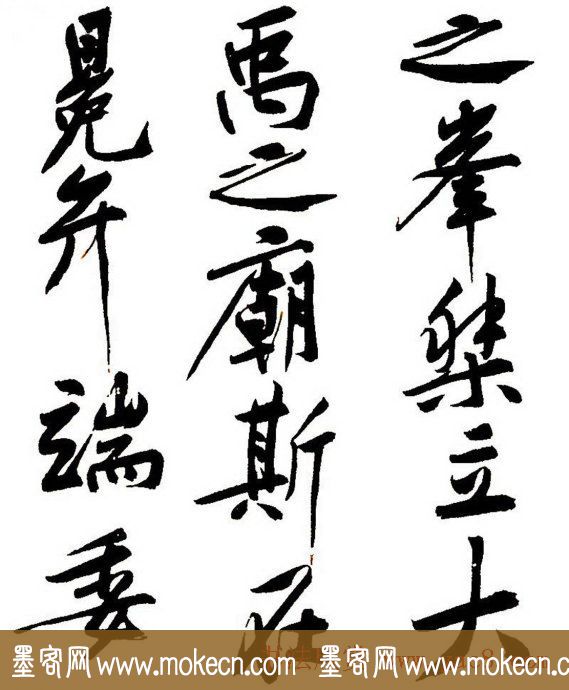 之峯桀立大
禹之廟斯在
冕弁端委
墨客网 www.mokecn.com 墨客网 www.mokecn.com